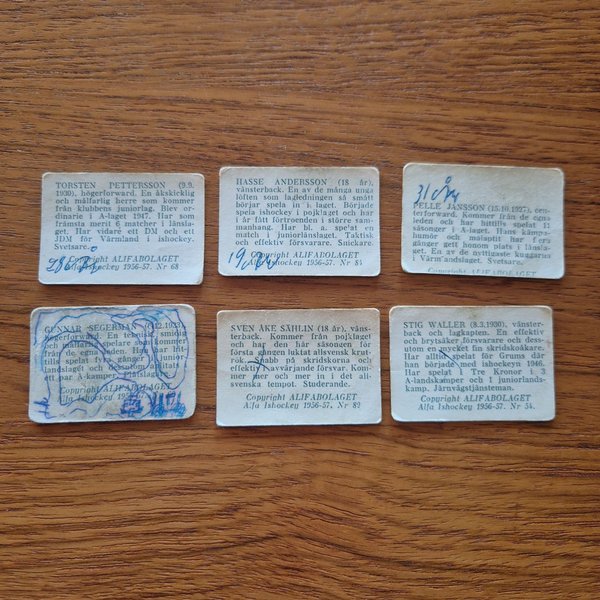 TORSTEN PETTERSSON (9.9.
1930), högerforward. En åkskicklig
och målfarlig herre som kommer
från klubbens juniorlag. Blev or-
dinarie i A-laget 1947. Har som
främsta merit 6 matcher i länsla-
get. Har vidare ett DM och ett
JDM för Värmland i ishockey.
Svetsare.
Copyright ALIFABOLAGET
Alfa Ishockey 1956-57. Nr 68
HASSE ANDERSSON (18 år),
vänsterback. En av de många unga
löften som lagledningen så smått
börjar spela in i laget. Började
spela ishockey i pojklaget och har
i år fått förtroenden i större sam-
manhang. Har bl. a. spelat en
match i juniorlänslaget. Taktisk
och effektiv försvarare. Snickare.
Copyright ALIFABOLAGET
Alfa Ishockey 1956-57. Nr
31 År
PELLE JANSSON (15.10.1927), cen-
terforward. Kommer från de egna
leden och har hittills spelat 11
säsonger i A-laget. Hans kämpa-
humör och målaptit har flera
gånger gett honom plats i länsla-
get. En av de nyttigaste kuggarna
i Värmlandslaget. Svetsare.
Copyright ALIFABOLAGET
GUNNAR SEGERMAN
högerforward. En teknisk, smidig
och målfarlig spelare som kommer
från de egna leden. Har hit-
tills spelat fyra gånger i junior-
landslaget och dessutom uttagits
ett par A-kamper
Copyright ALIFABOLAGET
Alfa Ishockey
SVEN ÅKE SÄHLIN (18 år), väns-
terback. Kommer från pojklaget
och har den här säsongen för
första gången luktat allsvensk krut-
rök. Snabb på skridskorna och
effektiv i avvärjande försvar. Kom-
mer mer och mer in i det all-
svenska tempot. Studerande.
Copyright ALIFABOLAGET
Alfa Ishockey 1956-57. Nr 82
STIG WALLER (8.3.1930), vänster-
back och lagkapten. En effektiv
och brytsäker försvarare och dess-
utom en mycket fin skridskoåkare.
Har alltid spelat för Grums där
han började med ishockeyn 1946.
Har spelat i Tre Kronor i 3
A-landskamper och 1 juniorlands-
kamp. Järnvägstjänsteman.
Copyright ALIFABOLAGET
Alfa Ishockey 1956-57. Nr 54.